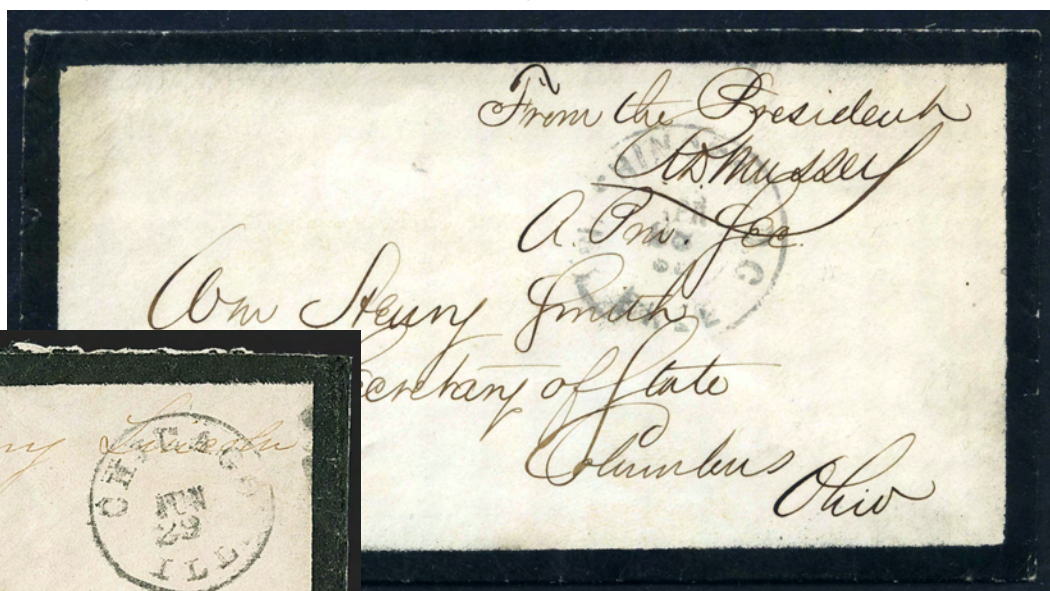 From the President
R.D. Mussey
A. Priv. Sec.
Wm Henry Smith
Secretary of State
Columbus
Ohio
APR
Lincoln
CHICAGO
JUN
29
ILL.